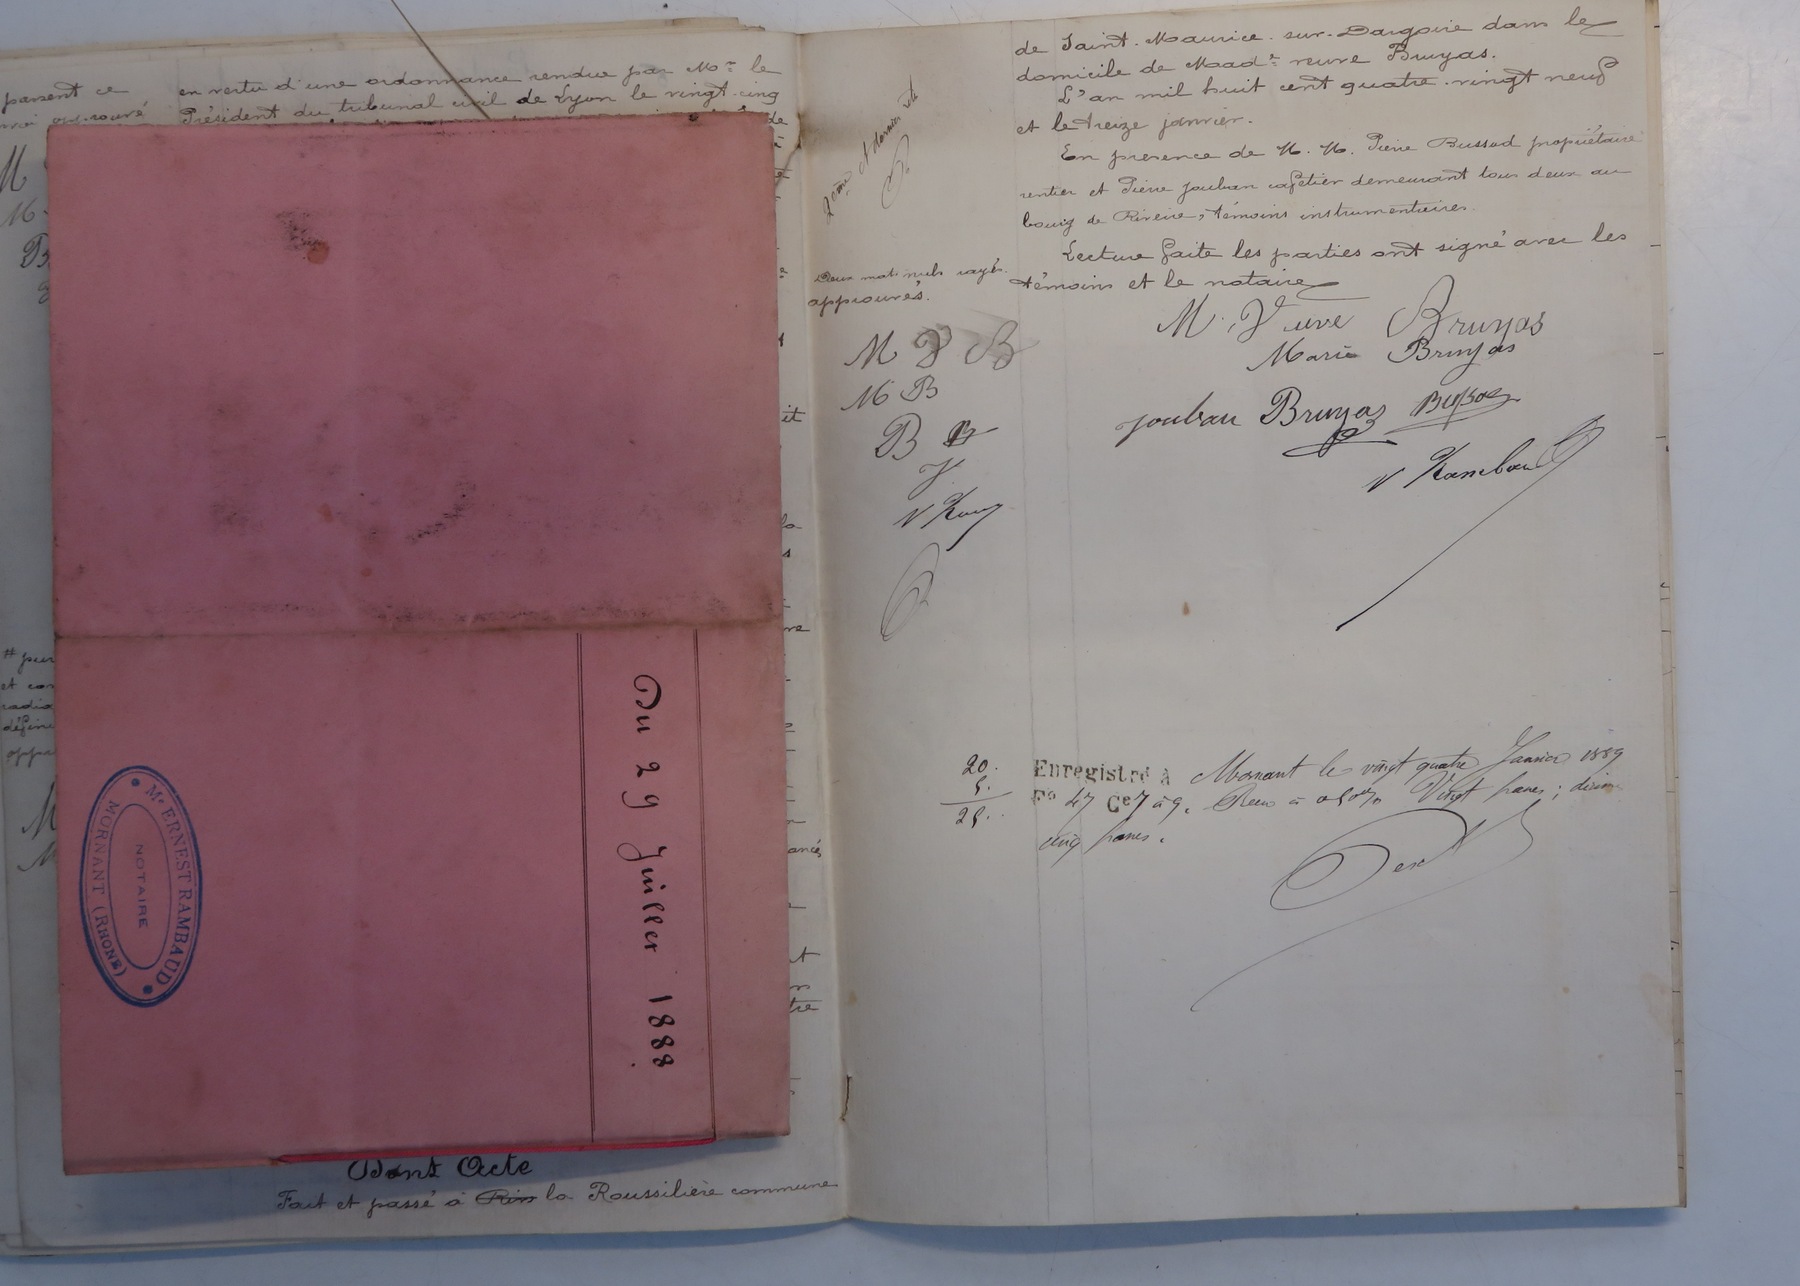 en vertu d'une ordonnance rendue par Mr le
Président du tribunal civil de Lyon le vingt-cinq
Du 29 Juillet 1888
Me ERNEST RAMBAUD
NOTAIRE
MORNANT (RHONE)
Dont Acte
Fait et passé à Riv la Roussilière commune
de Saint-Maurice-sur-Dargoire dans le
domicile de Made veuve Bruyas.
L'an mil huit cent quatre-vingt neuf
et le treize janvier.
En présence de M. M. Pierre Bussod propriétaire
rentier et Pierre Jouban cafetier demeurant tous deux au
bourg de Riverie, témoins instrumentaires.
Lecture faite les parties ont signé avec les
témoins et le notaire
2ème et dernier
Deux mots nuls rayés
approuvés.
M V B
M B
B B
J
M Veuve Bruyas
Marie Bruyas
Jouban Bruyas
Rambaud
20.
5.
25.
Enregistré à Mornant le vingt quatre Janvier 1889
Fo 47 Ce 7 à 9. Reçu à 0,50% Vingt francs; décimes
cinq francs.